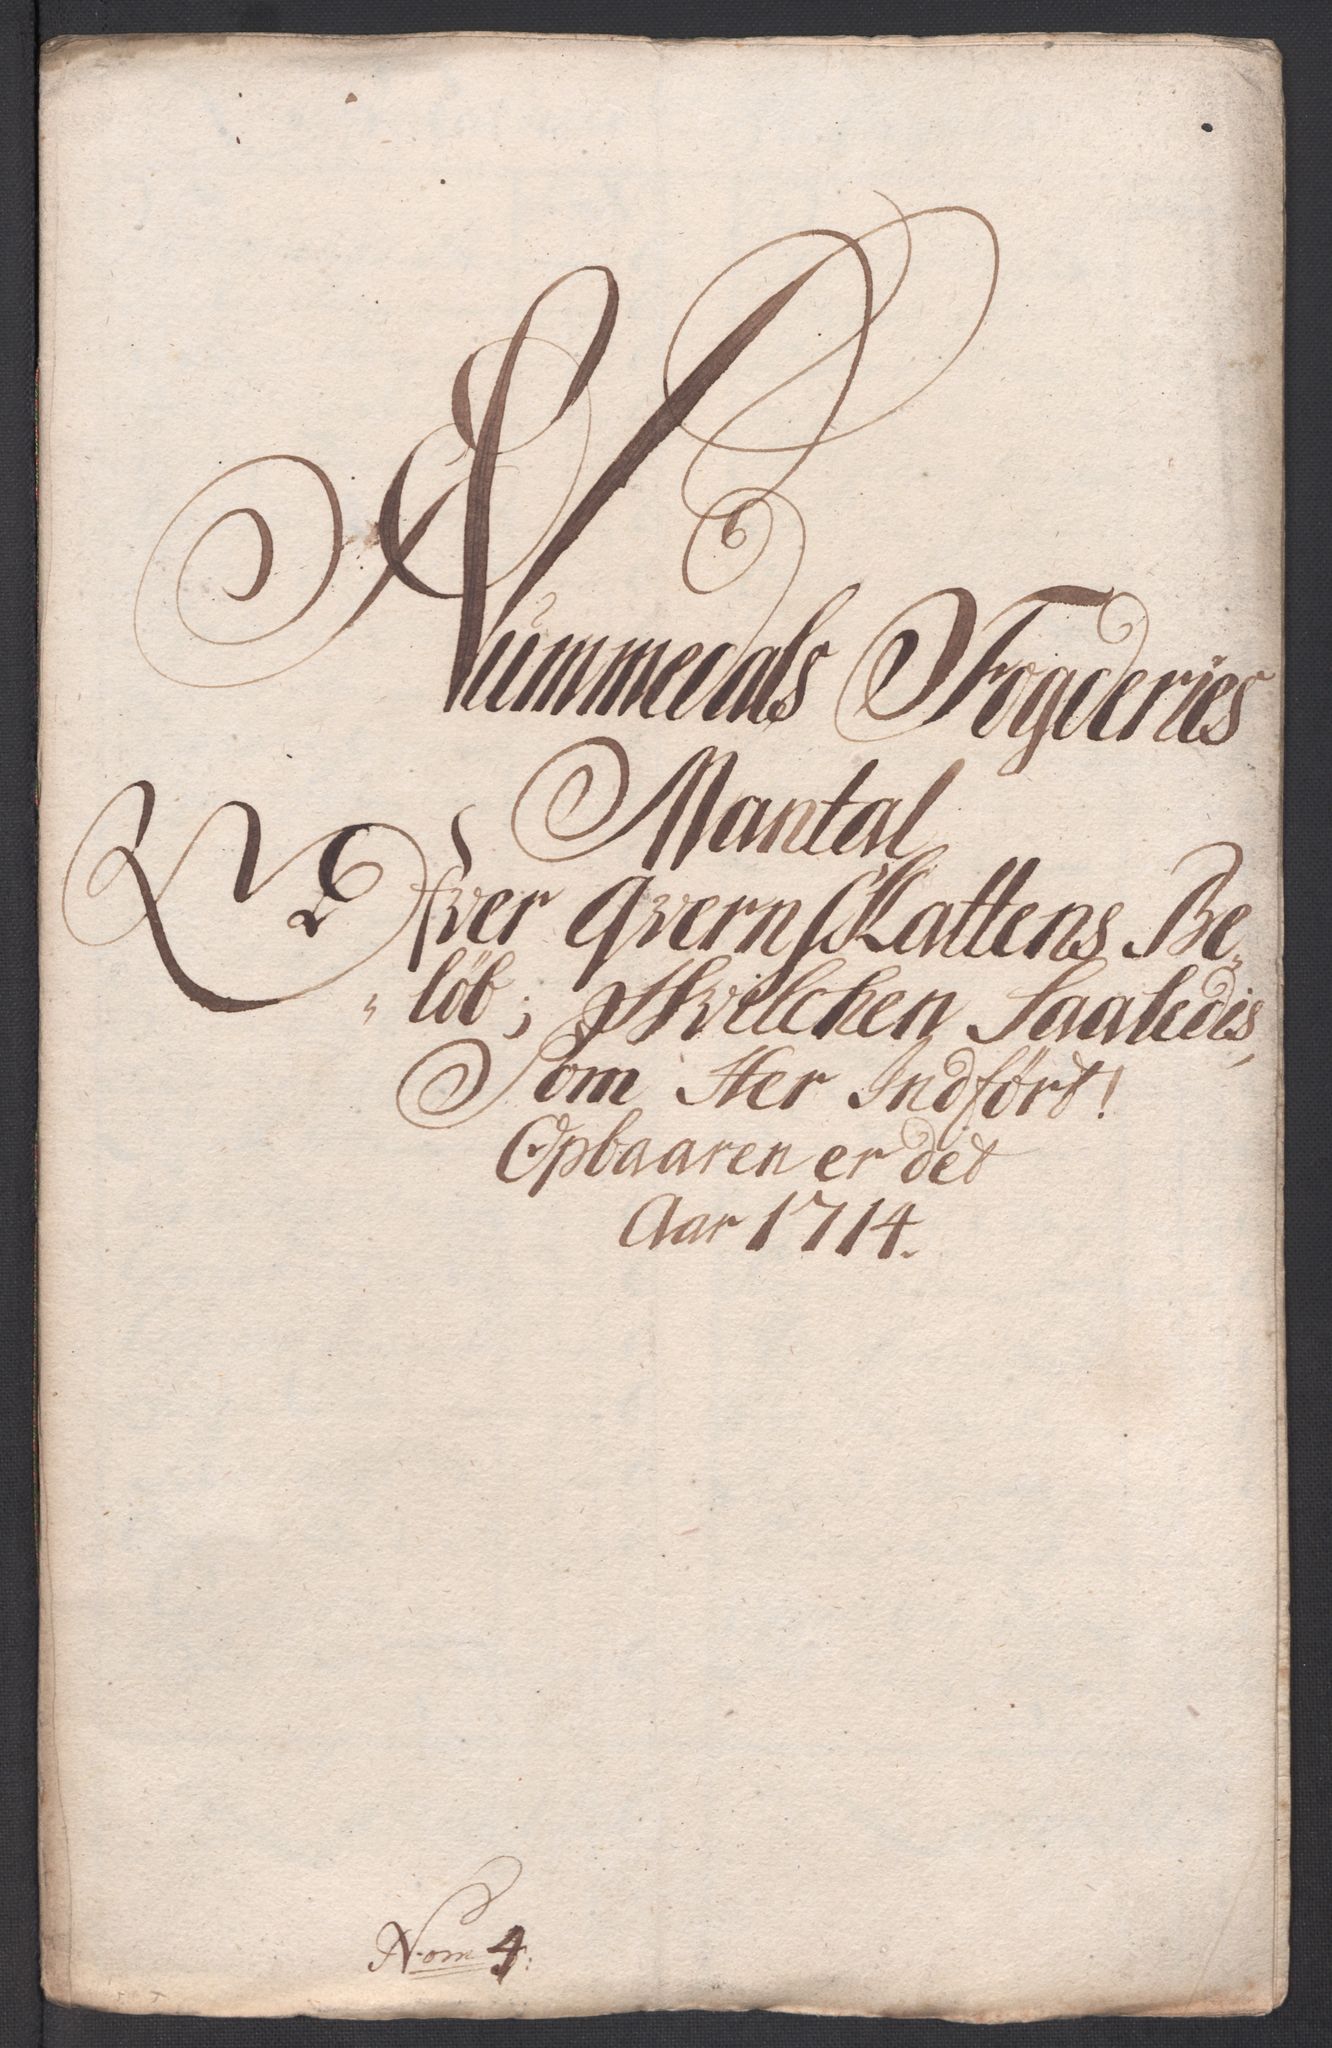 Nummedals Fogderies
Mantal
Ofver QvernSkattens Be„
„löb; Hvilchen Saaledis,
Som Her Indført!
Opbaaren er det
Aar 1714.
Nom 4: